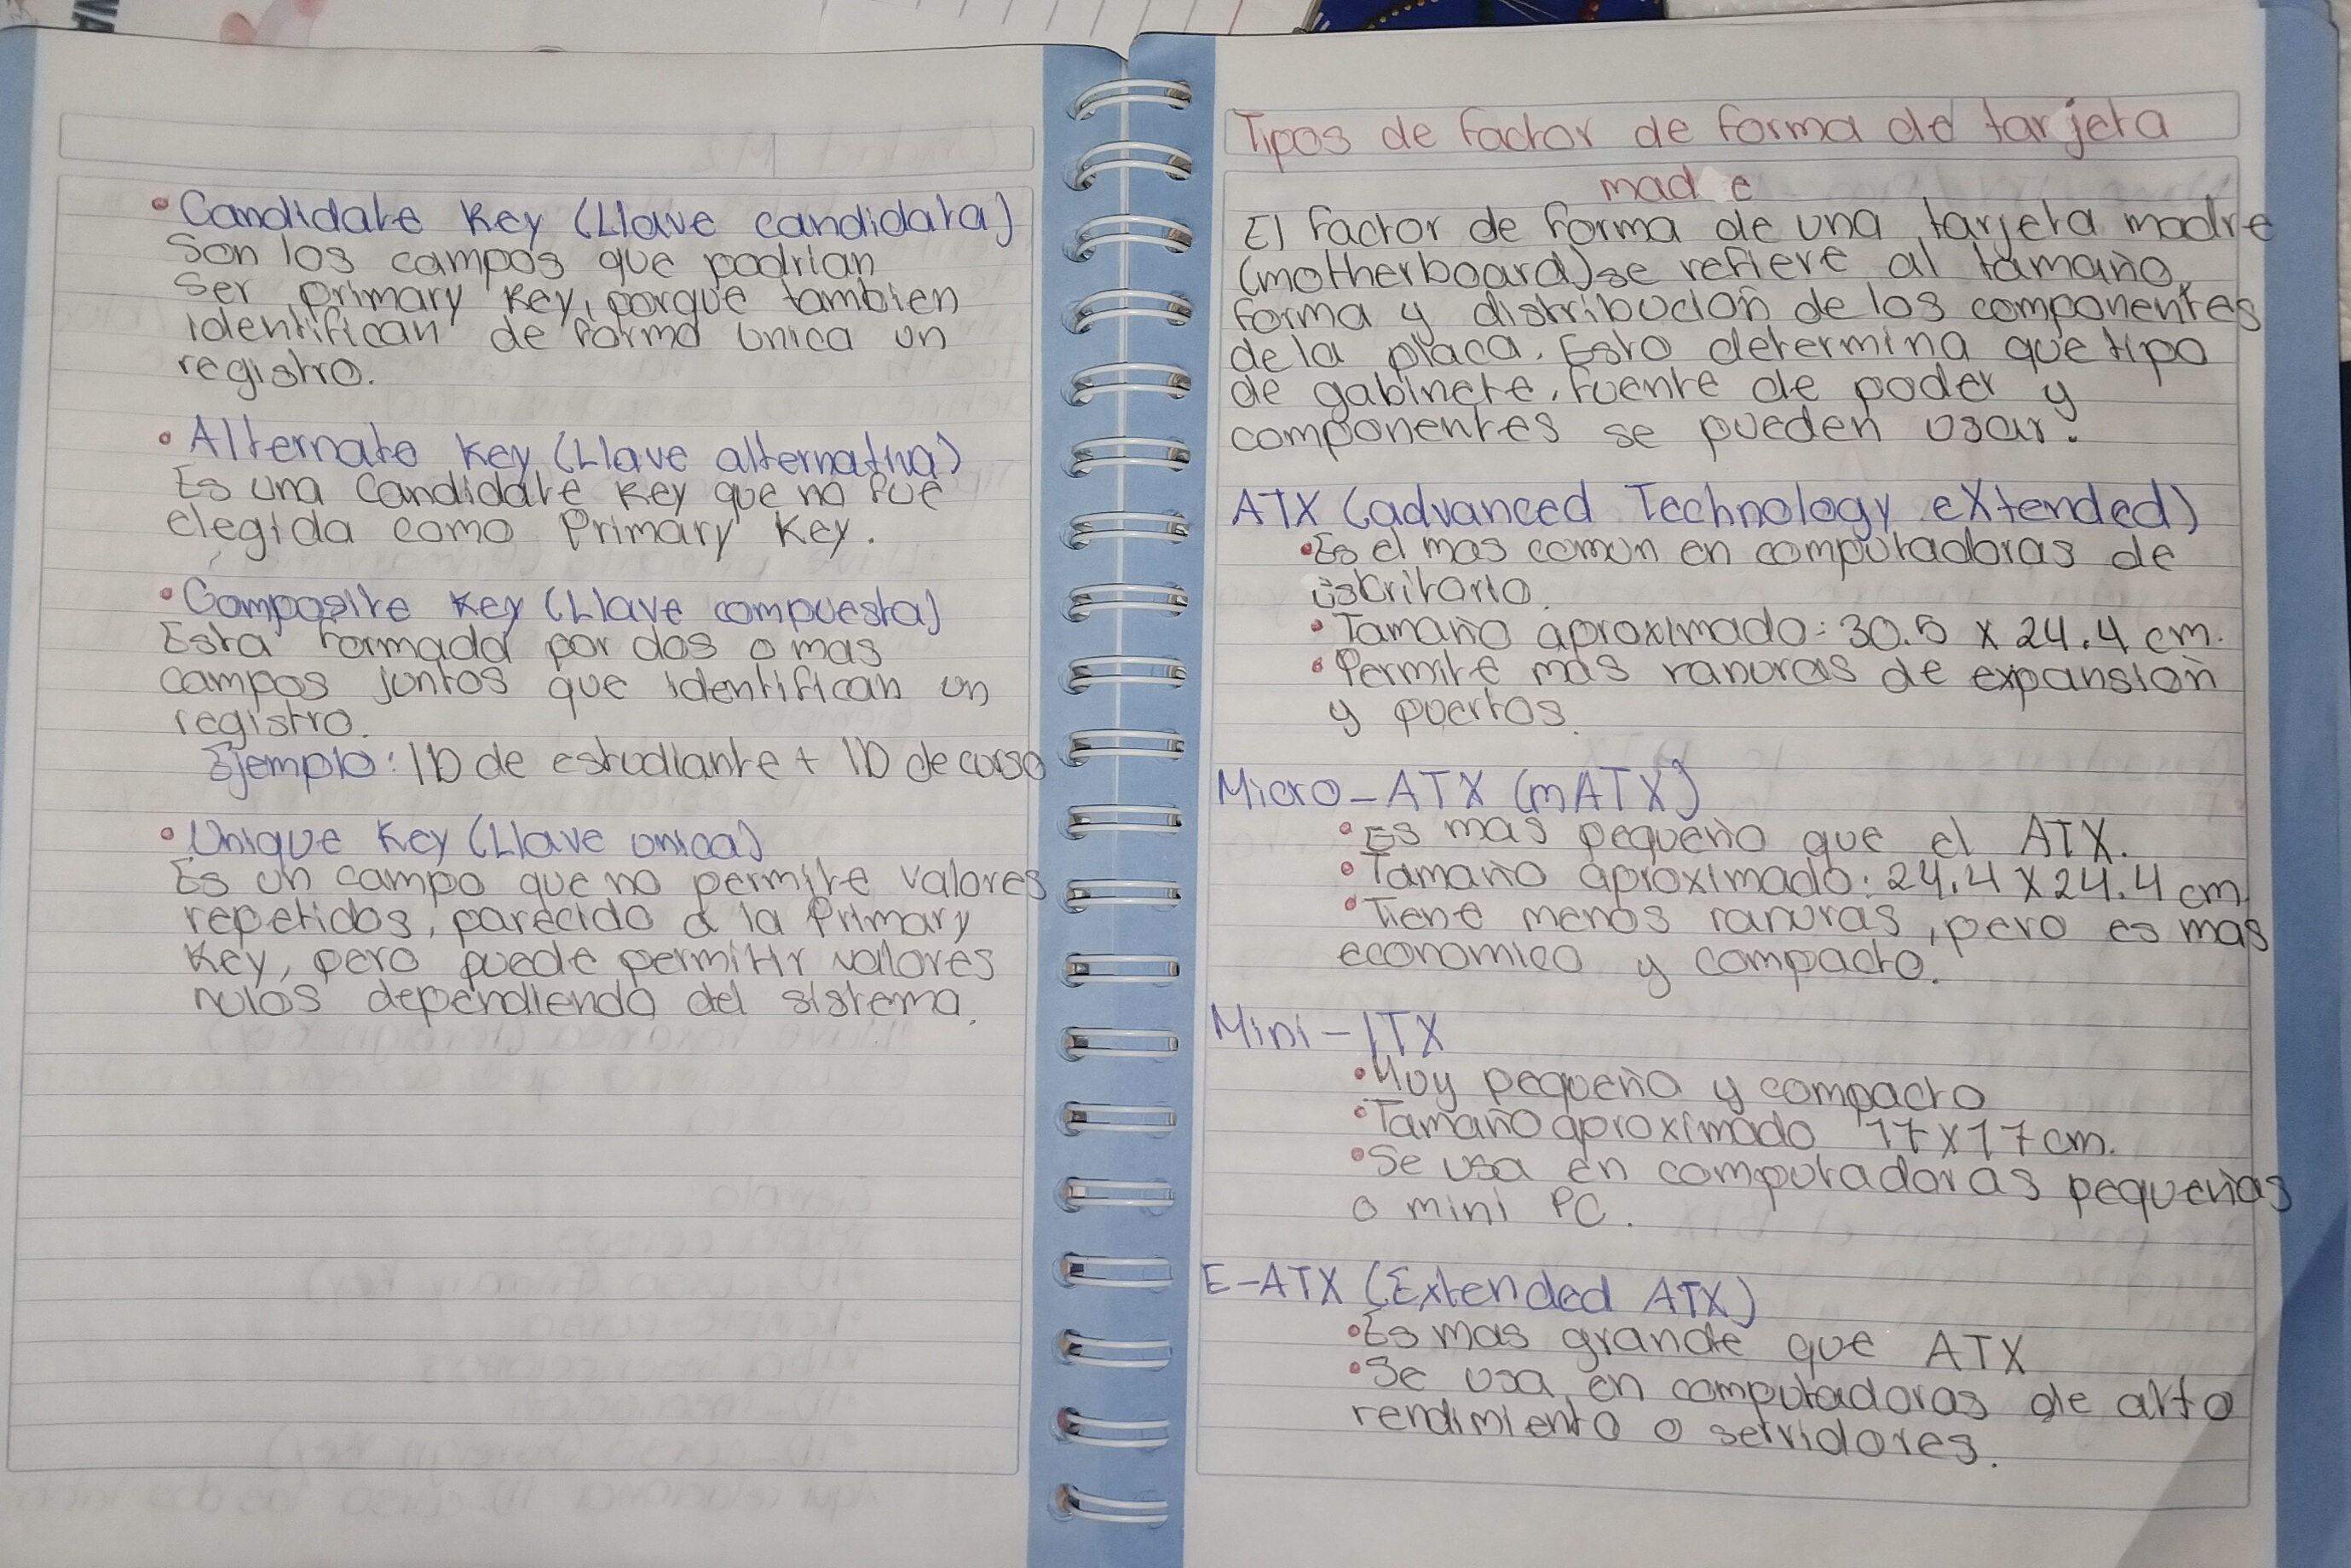 • Candidate Key (Llave candidata)
Son los campos que podrian
ser primary key, porque tambien
identifican de forma unica un
registro.
• Alternate key (Llave alternativa)
Es una Candidate key que no fue
elegida como Primary Key.
• Composite key (Llave compuesta)
Esta formada por dos o mas
campos juntos que identifican un
registro.
Ejemplo: ID de estudiante + ID de curso
• Unique Key (Llave unica)
Es un campo que no permite valores
repetidos, parecido a la Primary
Key, pero puede permitir valores
nulos dependiendo del sistema.
Tipos de factor de forma de tarjeta
mad e
El factor de forma de una tarjeta madre
(motherboard) se refiere al tamaño,
forma y distribución de los componentes
de la placa. Esto determina que tipo
de gabinete, fuente de poder y
componentes se pueden usar.
ATX (advanced Technology eXtended)
• Es el mas comun en computadoras de
escritorio.
• Tamaño aproximado: 30.5 x 24.4 cm.
• Permite mas ranuras de expansión
y puertos.
Micro-ATX (mATX)
• Es mas pequeño que el ATX.
• Tamaño aproximado: 24.4 x 24.4 cm
• Tiene menos ranuras, pero es mas
economico y compacto.
Mini-ITX
• Muy pequeño y compacto
• Tamaño aproximado 17x17cm.
• Se usa en computadoras pequeñas
o mini PC.
E-ATX (Extended ATX)
• Es mas grande que ATX
• Se usa en computadoras de alto
rendimiento o servidores.